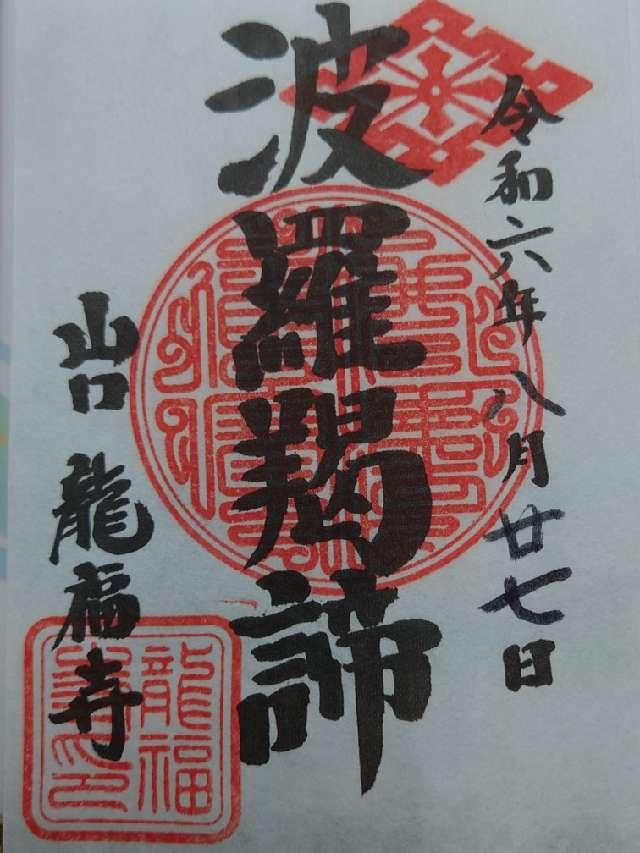 令和六年八月廿七日
波羅羯諦
山口 龍福寺
龍福
寺印